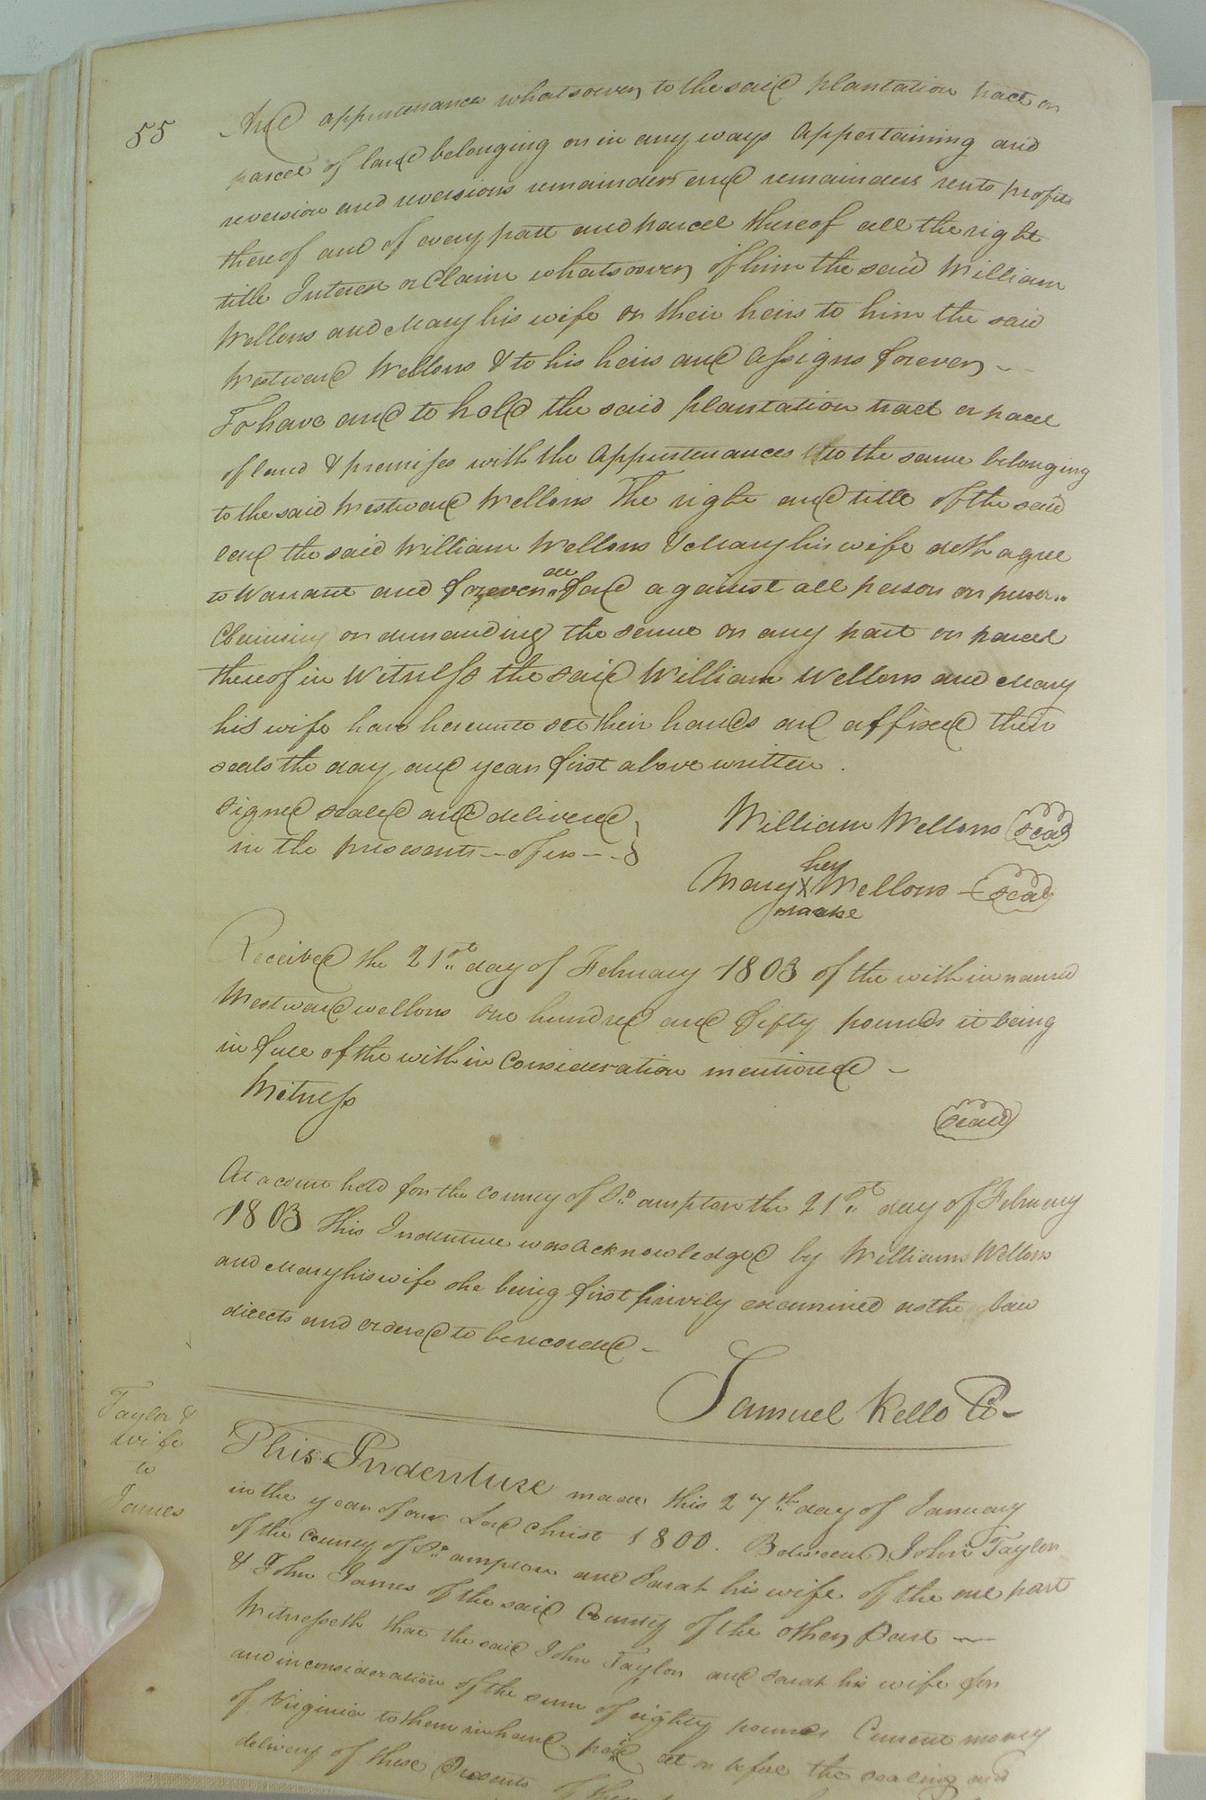 55
And appurtenances whatsoever, to the said plantation tract or
parcel of land belonging or in any ways Appertaining and
reversion and reversions remainder and remainders rents profits
thereof and of every patt and parcel thereof all the right
title Interest or Claim whatsoever, of him the said William
Wellons and Mary his wife or their heirs to him the said
Westward Wellons & to his heirs and Assigns forever,
To have and to hold the said plantation tract or parcel
of land & premises with the Appurtenances to the same belonging
to the said Westward Wellons The right and title of the said
land the said William Wellons & Mary his wife doth agree
to Warrant and forever
against all person or
Claiming or demanding the same or any part or parcel
thereof in Witness the said William Wellons and Mary
his wife have hereunto set their hands and affixed their
seals the day and year first above written.
Signed sealed and delivered
in the presesents of us
William Wellons Seal
her
Mary X Wellons Seal
marke
Received the 21st day of February 1803 of the within named
Westward wellons one hundred and fifty pounds it being
in full of the within Consideration mentioned
Witness
Seal
At a court held for the county of So ampton the 21st day of February
1803 This Indenture was Acknowledged by Williams Wellons
and Mary his wife she being first privily examined as the law
directs and ordered to be recorded
Samuel Kello Cc
Taylor &
wife
to
James
This Indenture made this 27th day of January
in the year of our Lord christ 1800. Between John Taylor
of the County of So ampton and Sarah his wife of the one part
& John James of the said County of the other, Part
Witnesseth that the said John Taylor and Sarah his wife for
and in consideration of the sum of eighty pounds Current money
of Virginia to them in hand paid at or before the sealing and
delivery of these Presents